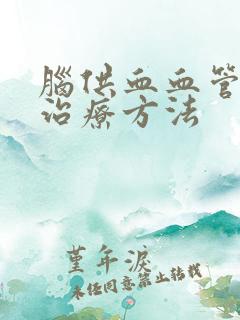 腦供血血管
治療方法
堇年淚
未经同意禁止转载